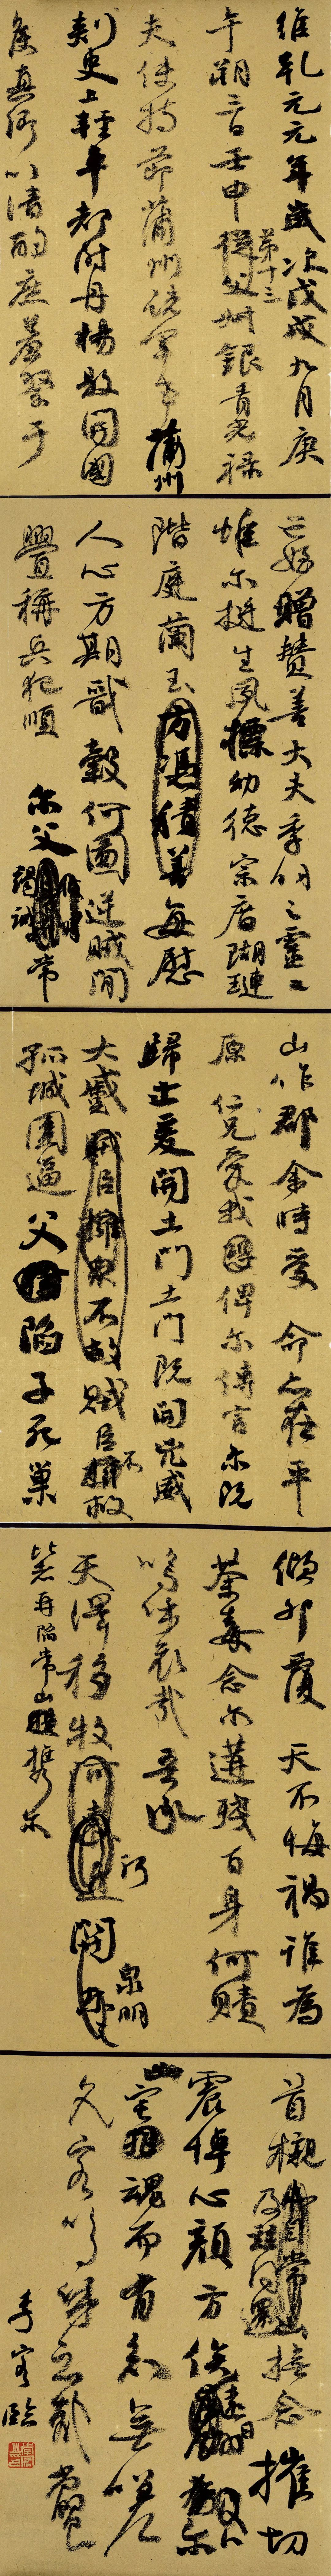 維乾元元年歲次戊戌九月庚
午朔三日壬申第十三從父㭒銀青光禄
夫使持節蒲州諸軍事蒲州
刾史上輕車都尉丹楊縣開國
侯真卿以清酌庶羞祭于
亡姪贈贊善大夫季明之靈曰
惟尔挺生夙標幼德宗廟瑚璉
階庭蘭玉方憑積善每慰
人心方期戩穀何圖逆賊閒
舋稱兵犯順尔父竭誠常
山作郡余時受命亦在平
原仁兄愛我俾尔傳言尔既
歸止爰開土門土門既開凶威
大蹙賊臣擁眾不救賊臣不救
孤城圍逼父陷子死巢
傾卵覆天不悔禍誰為
荼毒念尔遘殘百身何贖
嗚呼哀哉吾承
天澤移牧河關泉明
比者再陷常山攜尔
首櫬及茲同還撫念摧切
震悼心顏方俟遠日卜尔
幽宅魂而有知無嗟
久客嗚呼哀哉尚饗
季客臨